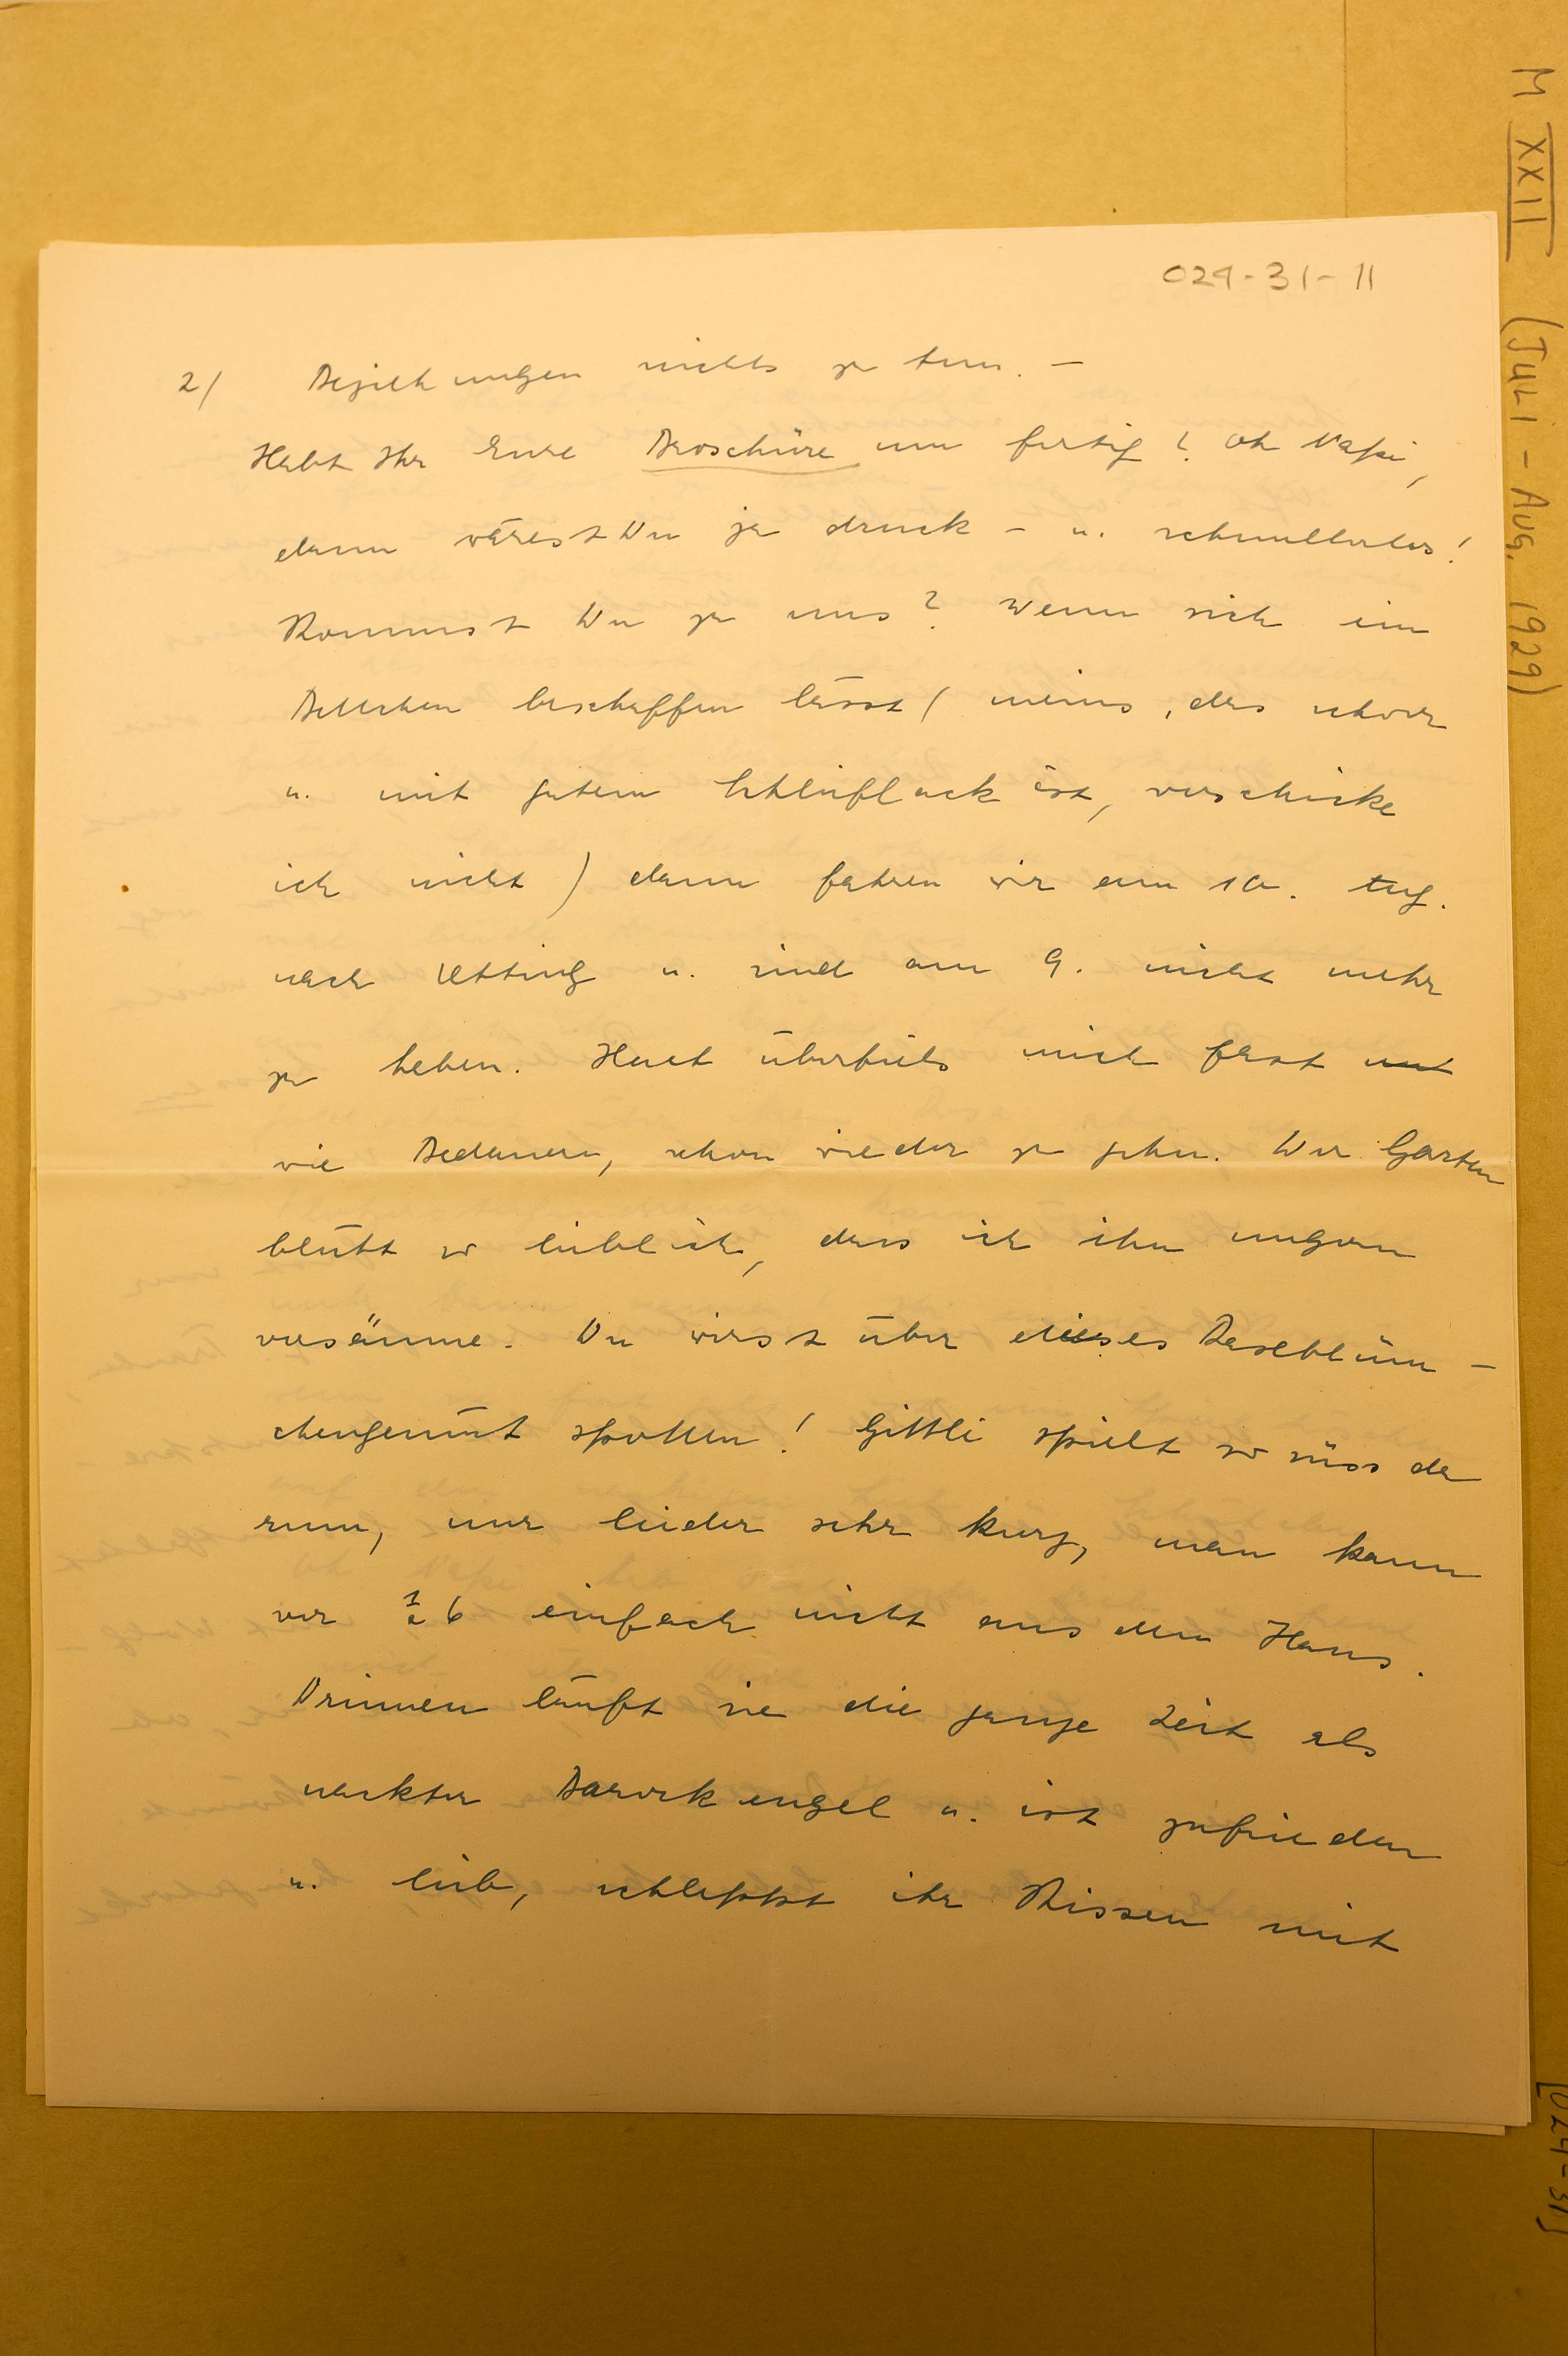 M XXII (JULI - AUG. 1929)
024-31-11
2/ Beziehungen nichts zu tun. –
Habt Ihr Eure Broschüre nun fertig? Oh Napi,
dann wärest Du ja druck- u. schnullerlos!
Kommst Du zu uns? Wenn sich ein
Bettchen beschaffen lässt (meins, das schwer
u. mit gutem Schleiflack ist, verschicke
ich nicht) dann fahren wir am 10. Aug.
nach Utting u. sind am 9. nicht mehr
zu haben. Heut überfiels mich fast
wie Bedauern, schon wieder zu gehn. Der Garten
blüht so lieblich, dass ich ihn ungern
versäume. Du wirst über dieses Baseblüm-
chengemüt spotten! Gittli spielt so süss da
rum, nur leider sehr kurz, man kann
vor ½ 6 einfach nicht aus dem Haus.
Drinnen läuft sie die ganze Zeit als
nackter Barockengel u. ist zufrieden
u. lieb, schleppt ihr Kissen mit
[024-31]